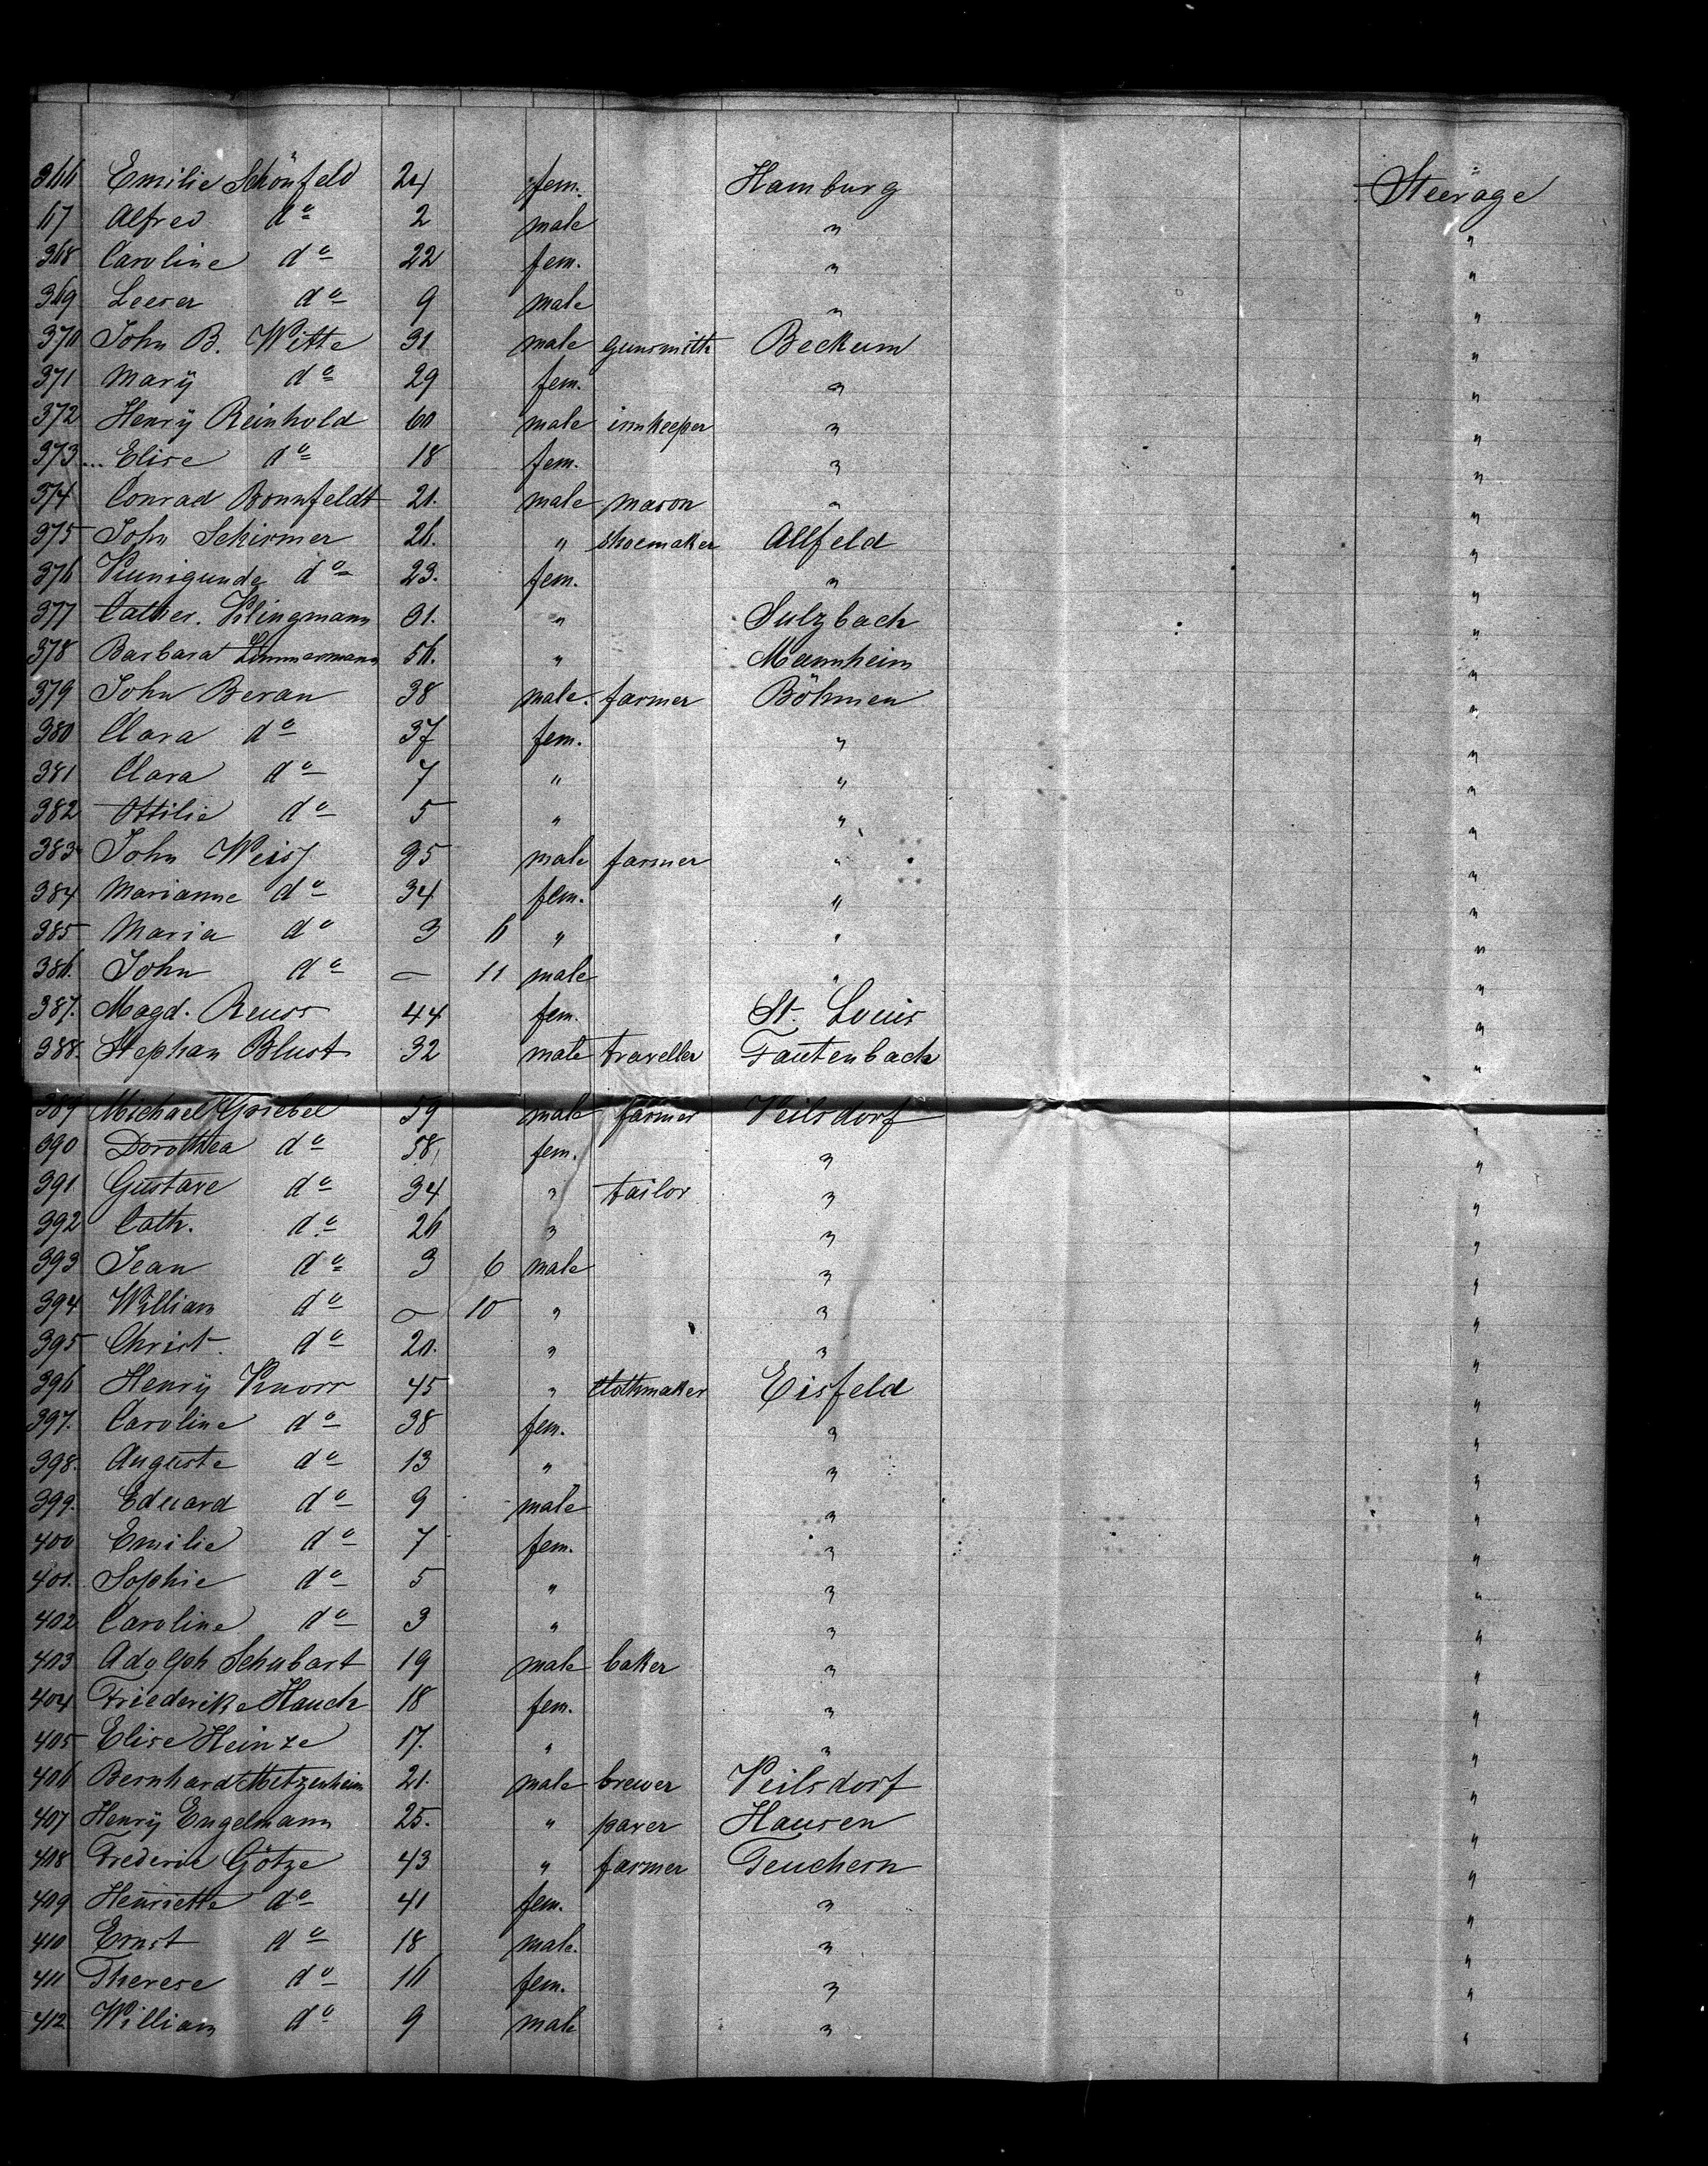 366 Emilie Schönfeld 24 fem. Hamburg Steerage
67 Alfred do 2 male " "
368 Caroline do 22 fem. " "
369 Leeser do 9 male " "
370 John B. Witte 31 male gunsmith Beckum "
371 Marÿ do 29 fem. " "
372 Henrÿ Reinhold 60 male innkeeper " "
373 Elise do 18 fem. " "
374 Conrad Bonnfeldt 21. male mason " "
375 John Schirmer 26. " shoemaker Allfeld "
376 Kunigunde do 23. fem. " "
377 Cather. Klingmann 31. " Sulzbach "
378 Barbara Zimmermann 56. " Mannheim "
379 John Beran 38 male. farmer Böhmen "
380 Clara do 37 fem. " "
381 Clara do 7 " " "
382 Ottilie do 5 " " "
383 John Weiss 35 male farmer " "
384 Marianne do 34 fem. " "
385 Maria do 3 6 " " "
386. John do — 11 male " "
387. Magd. Reuss 44 fem. St. Louis "
388. Stephan Blust 32 male traveller Fautenbach "
389 Michael Griebel 59 male farmer Veilsdorf "
390 Dorothea do 58 fem. " "
391 Gustave do 34 " tailor " "
392 Cath. do 26 " " "
393 Jean do 3 6 male " "
394 William do — 10 " " "
395 Christ. do 20. " " "
396 Henrÿ Knorr 45 " clothmaker Eisfeld "
397. Caroline do 38 fem. " "
398. Auguste do 13 " " "
399. Eduard do 9 male " "
400 Emilie do 7 fem. " "
401. Sophie do 5 " " "
402 Caroline do 3 " " "
403 Adolph Schubart 19 male baker " "
404 Friederike Hauch 18 fem. " "
405 Elise Heinze 17. " " "
406 Bernhard Metzenheim 21. male brewer Veilsdorf "
407 Henrÿ Engelmann 25. " paver Hausen "
408 Frederic Götze 43 " farmer Teuchern "
409 Henriette do 41 fem. " "
410 Ernst do 18 male. " "
411 Therese do 16 fem. " "
412 William do 9 male " "